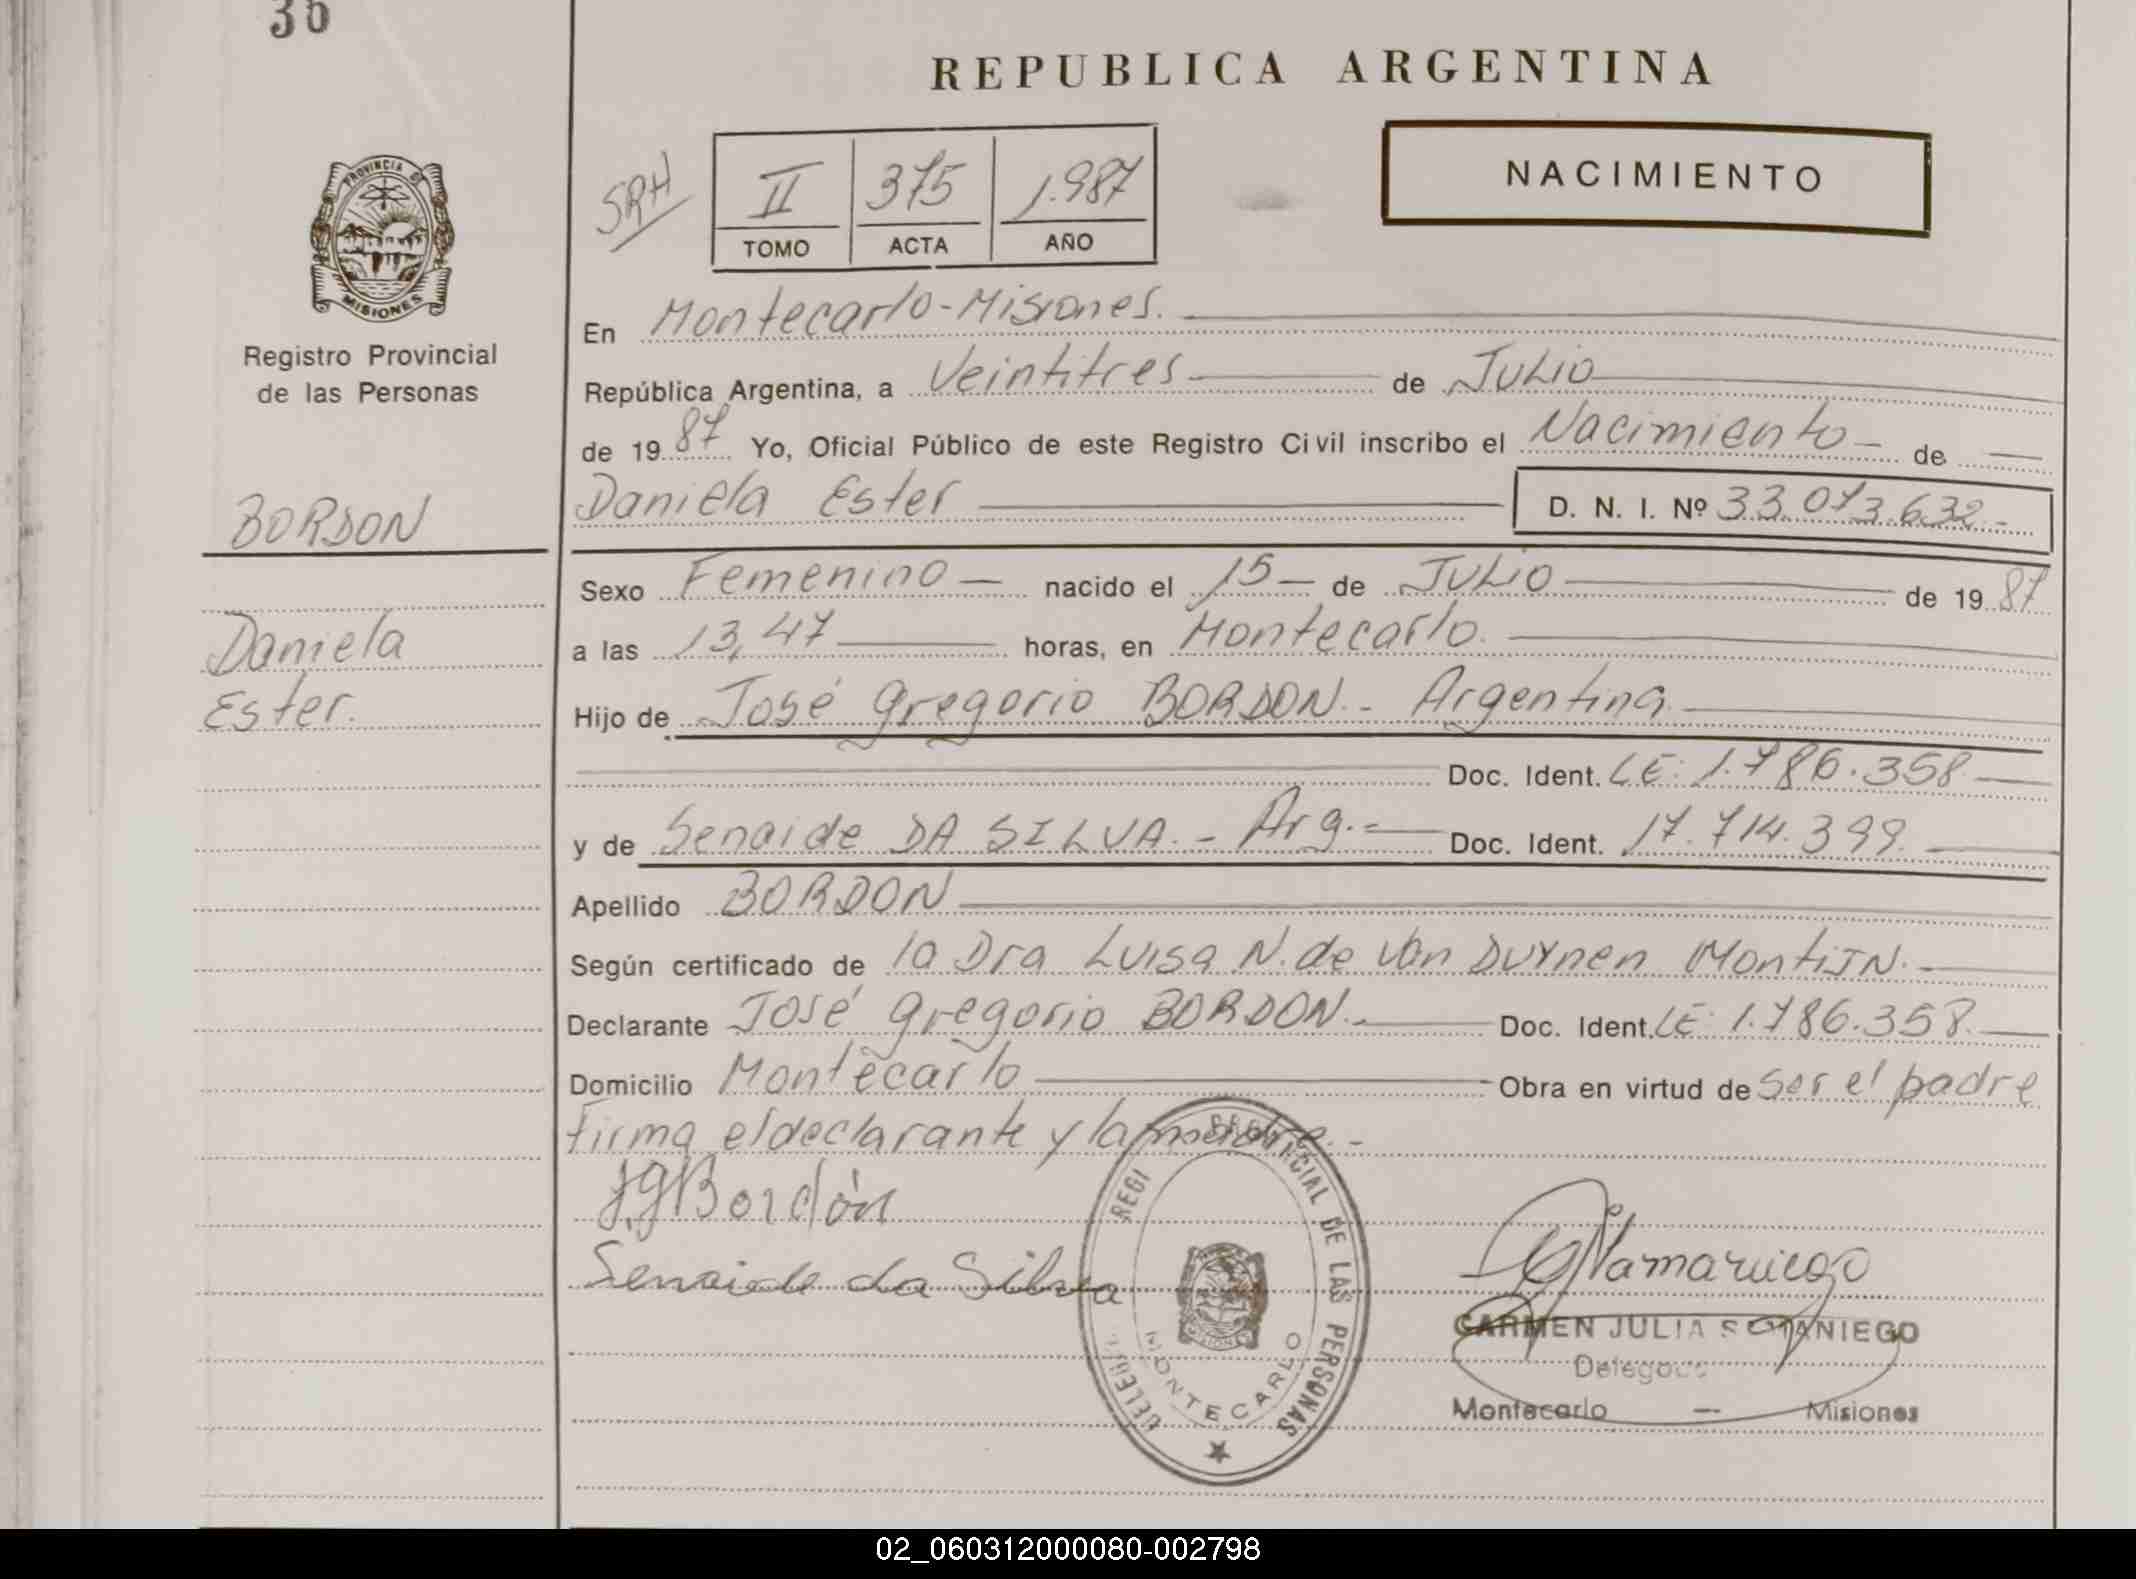 36
REPUBLICA ARGENTINA
PROVINCIA D
MISIONES
Registro Provincial
de las Personas
SRH
II 375 1.987
TOMO ACTA AÑO
NACIMIENTO
En Montecarlo-Misiones.
República Argentina, a Veintitres de Julio
de 1987 Yo, Oficial Público de este Registro Civil inscribo el Nacimiento de
BORDON
Daniela Ester D. N. I. Nº 33.073.632.-
Daniela
Ester.
Sexo Femenino nacido el 15 de Julio de 1987
a las 13,47 horas, en Montecarlo.
Hijo de José Gregorio BORDON.- Argentina
Doc. Ident. LE: 1.786.358.
y de Senaide DA SILVA.- Arg.- Doc. Ident. 17.714.399.
Apellido BORDON
Según certificado de la Dra Luisa N. de Van Duynen MontiJN.
Declarante José Gregorio BORDON.- Doc. Ident. LE: 1.786.358.
Domicilio Montecarlo Obra en virtud de ser el padre
Firma el declarante y la madre.-
JGBordón
Senaide da Silva
PROVINCIAL DE LAS PERSONAS
MONTECARLO
CARMEN JULIA SAMANIEGO
Montecarlo — Misiones
02_060312000080-002798